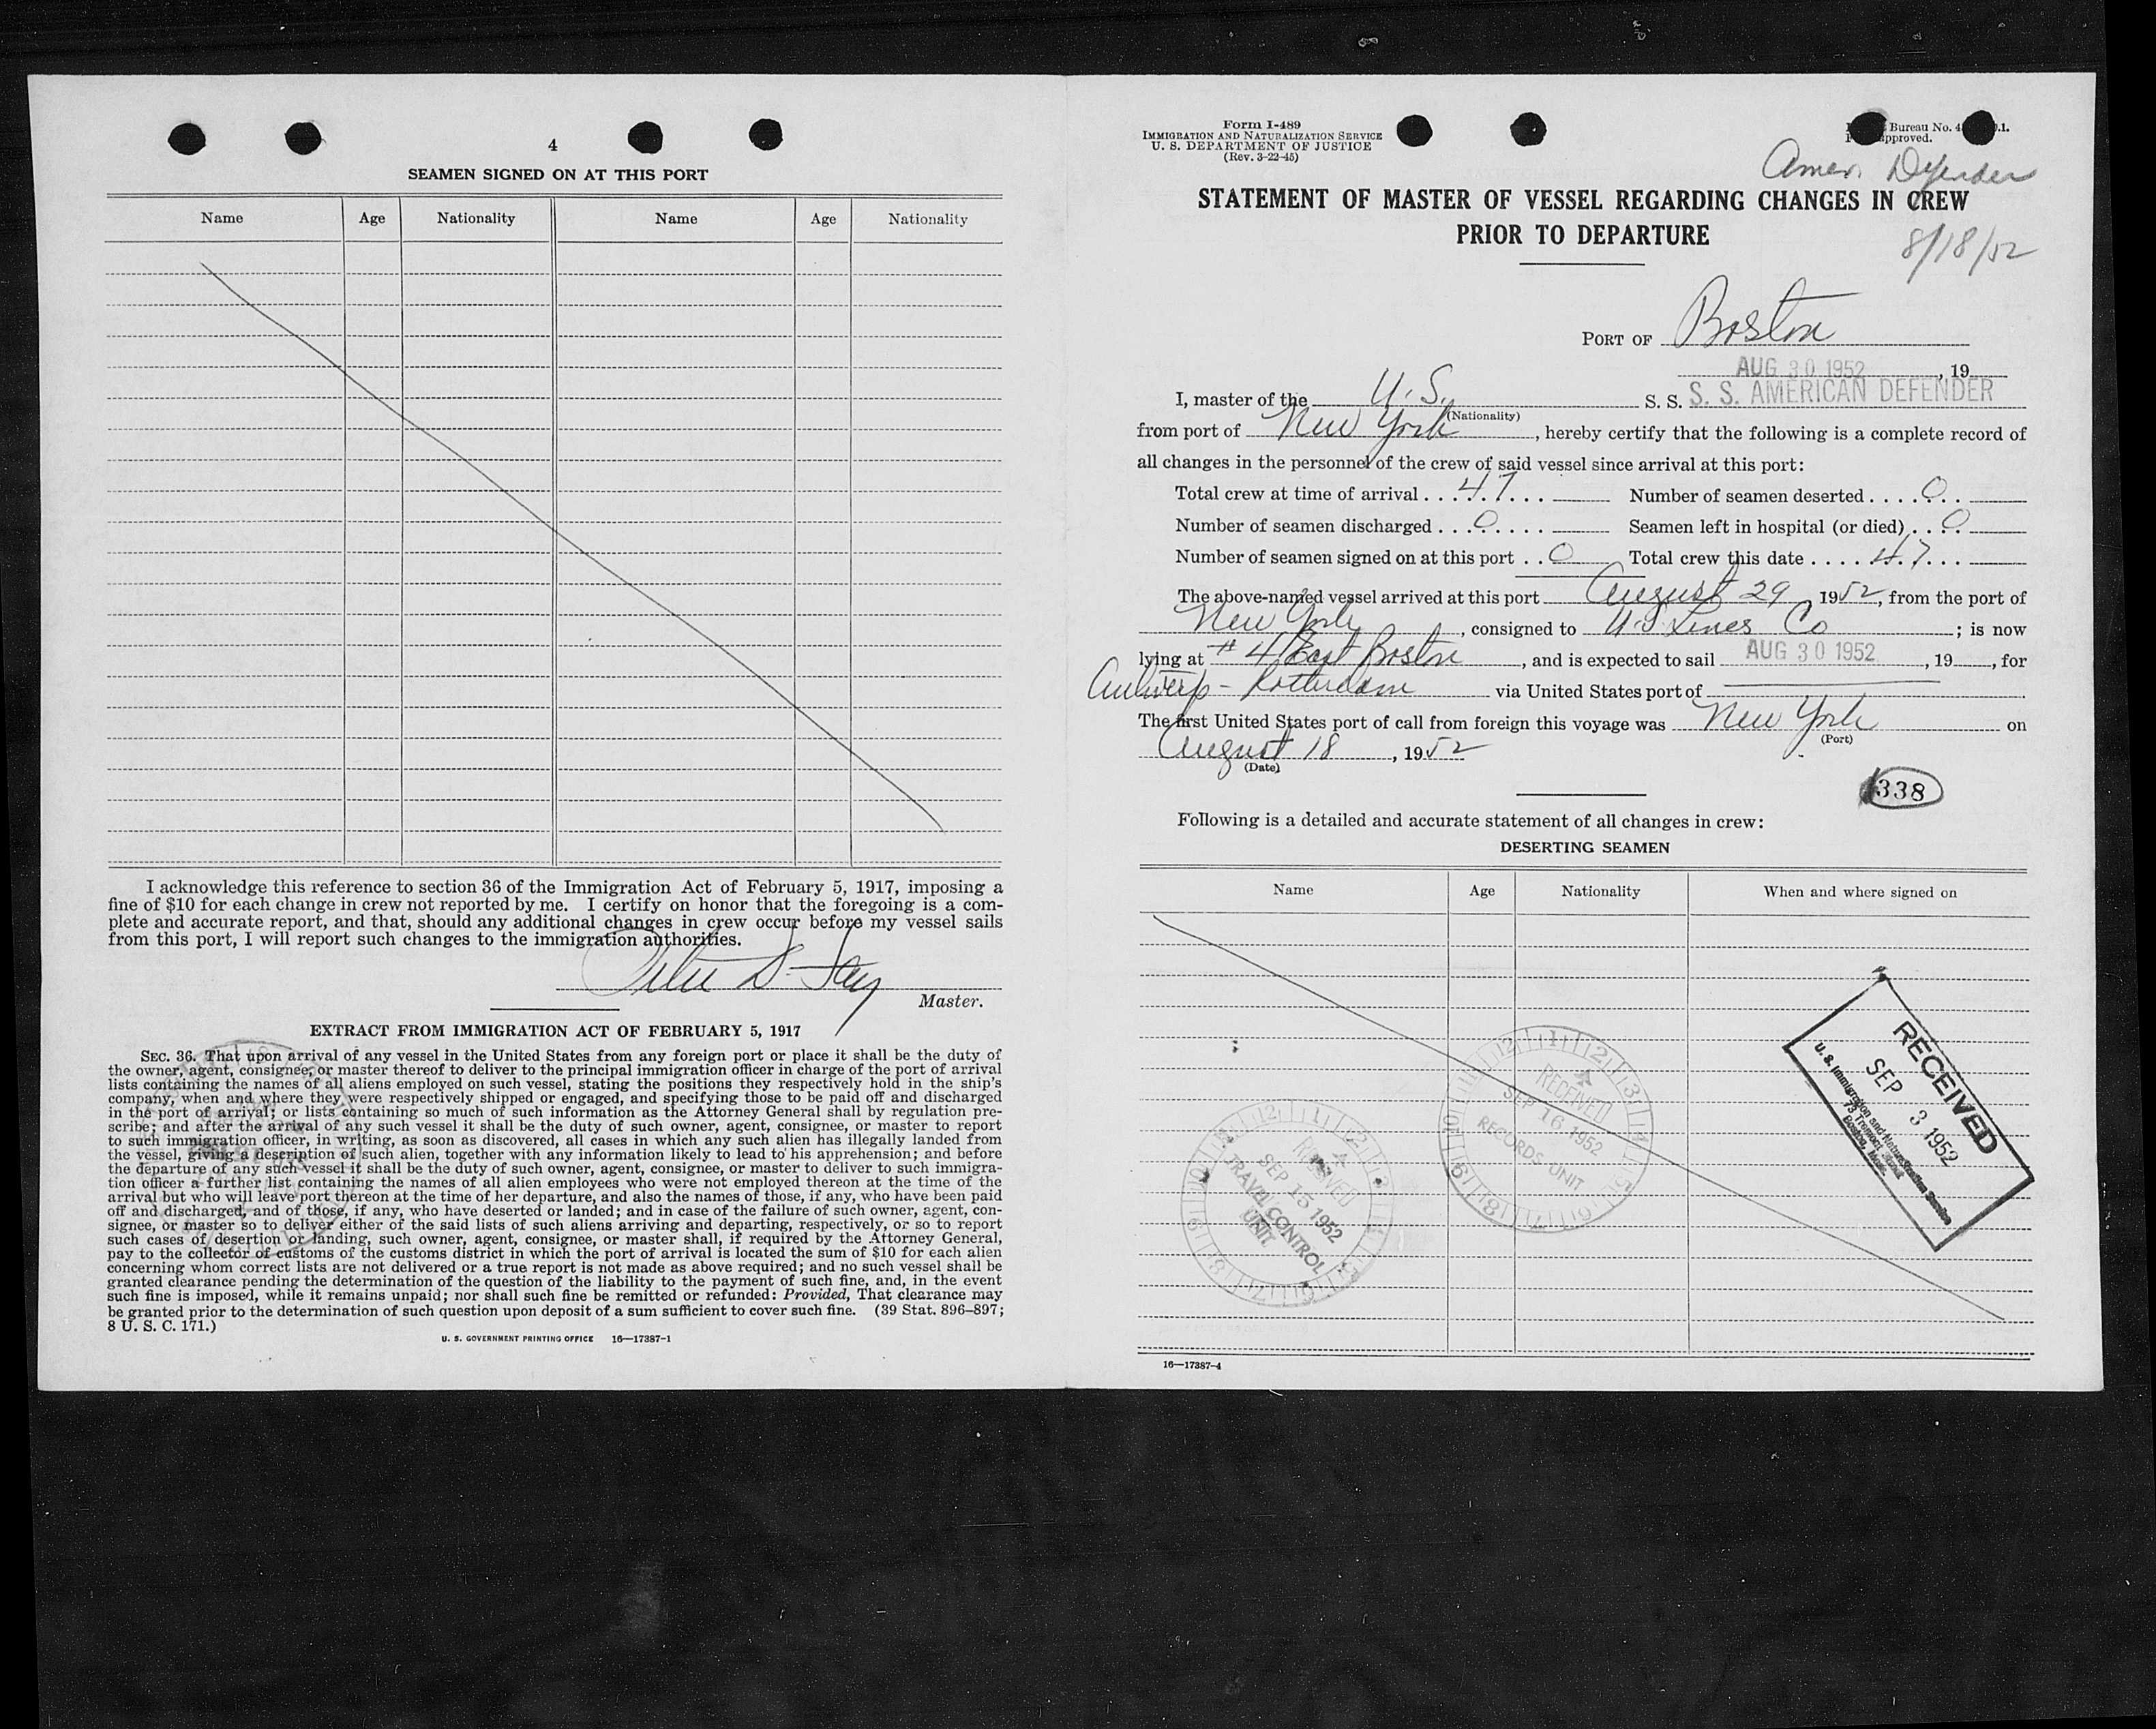 4
SEAMEN SIGNED ON AT THIS PORT
Name Age Nationality Name Age Nationality
I acknowledge this reference to section 36 of the Immigration Act of February 5, 1917, imposing a
fine of $10 for each change in crew not reported by me. I certify on honor that the foregoing is a com-
plete and accurate report, and that, should any additional changes in crew occur before my vessel sails
from this port, I will report such changes to the immigration authorities.
Master.
EXTRACT FROM IMMIGRATION ACT OF FEBRUARY 5, 1917
SEC. 36. That upon arrival of any vessel in the United States from any foreign port or place it shall be the duty of
the owner, agent, consignee, or master thereof to deliver to the principal immigration officer in charge of the port of arrival
lists containing the names of all aliens employed on such vessel, stating the positions they respectively hold in the ship's
company, when and where they were respectively shipped or engaged, and specifying those to be paid off and discharged
in the port of arrival; or lists containing so much of such information as the Attorney General shall by regulation pre-
scribe; and after the arrival of any such vessel it shall be the duty of such owner, agent, consignee, or master to report
to such immigration officer, in writing, as soon as discovered, all cases in which any such alien has illegally landed from
the vessel, giving a description of such alien, together with any information likely to lead to his apprehension; and before
the departure of any such vessel it shall be the duty of such owner, agent, consignee, or master to deliver to such immigra-
tion officer a further list containing the names of all alien employees who were not employed thereon at the time of the
arrival but who will leave port thereon at the time of her departure, and also the names of those, if any, who have been paid
off and discharged, and of those, if any, who have deserted or landed; and in case of the failure of such owner, agent, con-
signee, or master so to deliver either of the said lists of such aliens arriving and departing, respectively, or so to report
such cases of desertion or landing, such owner, agent, consignee, or master shall, if required by the Attorney General,
pay to the collector of customs of the customs district in which the port of arrival is located the sum of $10 for each alien
concerning whom correct lists are not delivered or a true report is not made as above required; and no such vessel shall be
granted clearance pending the determination of the question of the liability to the payment of such fine, and, in the event
such fine is imposed, while it remains unpaid; nor shall such fine be remitted or refunded: Provided, That clearance may
be granted prior to the determination of such question upon deposit of a sum sufficient to cover such fine. (39 Stat. 896–897;
8 U. S. C. 171.)
U. S. GOVERNMENT PRINTING OFFICE 16—17387-1
Form I-489
IMMIGRATION AND NATURALIZATION SERVICE
U. S. DEPARTMENT OF JUSTICE
(Rev. 3-22-45)
Bureau No.
approved.
Amer. Defender
STATEMENT OF MASTER OF VESSEL REGARDING CHANGES IN CREW
PRIOR TO DEPARTURE
8/18/52
PORT OF Boston
AUG 30 1952, 19
I, master of the U.S. S. S. S. S. AMERICAN DEFENDER
(Nationality)
from port of New York, hereby certify that the following is a complete record of
all changes in the personnel of the crew of said vessel since arrival at this port:
Total crew at time of arrival . . . 47 . . . Number of seamen deserted . . . . 0 . .
Number of seamen discharged . . . 0 . . . . Seamen left in hospital (or died) . . 0
Number of seamen signed on at this port . . 0 Total crew this date . . . . 47 . . .
The above-named vessel arrived at this port August 29, 1952, from the port of
New York, consigned to U.S. Lines Co; is now
lying at #4 East Boston, and is expected to sail AUG 30 1952, 19, for
Antwerp - Rotterdam via United States port of
The first United States port of call from foreign this voyage was New York on
(Port)
August 18, 1952
(Date)
338
Following is a detailed and accurate statement of all changes in crew:
DESERTING SEAMEN
Name Age Nationality When and where signed on
RECEIVED
SEP 3 1952
U. S. Immigration and Naturalization Service
73 Tremont Street
Boston, Mass.
RECEIVED
SEP 16 1952
RECORDS UNIT
RECEIVED
SEP 15 1952
TRAVEL CONTROL
UNIT
16—17387-4